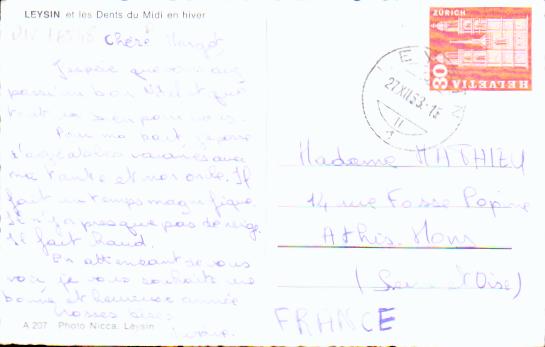 LEYSIN et les Dents du Midi en hiver
Chère Margot
J'espère que vous avez
passé un bon Noël et que
tout va bien pour vous.
Pour ma part, je passe
d'agréables vacances avec
ma tante et mon oncle. Il
fait un temps magnifique
Il n'y a presque pas de neige.
Il fait chaud.
En attendant de vous
voir, je vous souhaite une
bonne et heureuse année
Grosses bises
A 207 Photo Nicca, Leysin
ZÜRICH
80
HELVETIA
27 XII 63
Madame MATHIEU
14 rue Fosse Popine
Athis. Mons
(Seine et Oise)
FRANCE